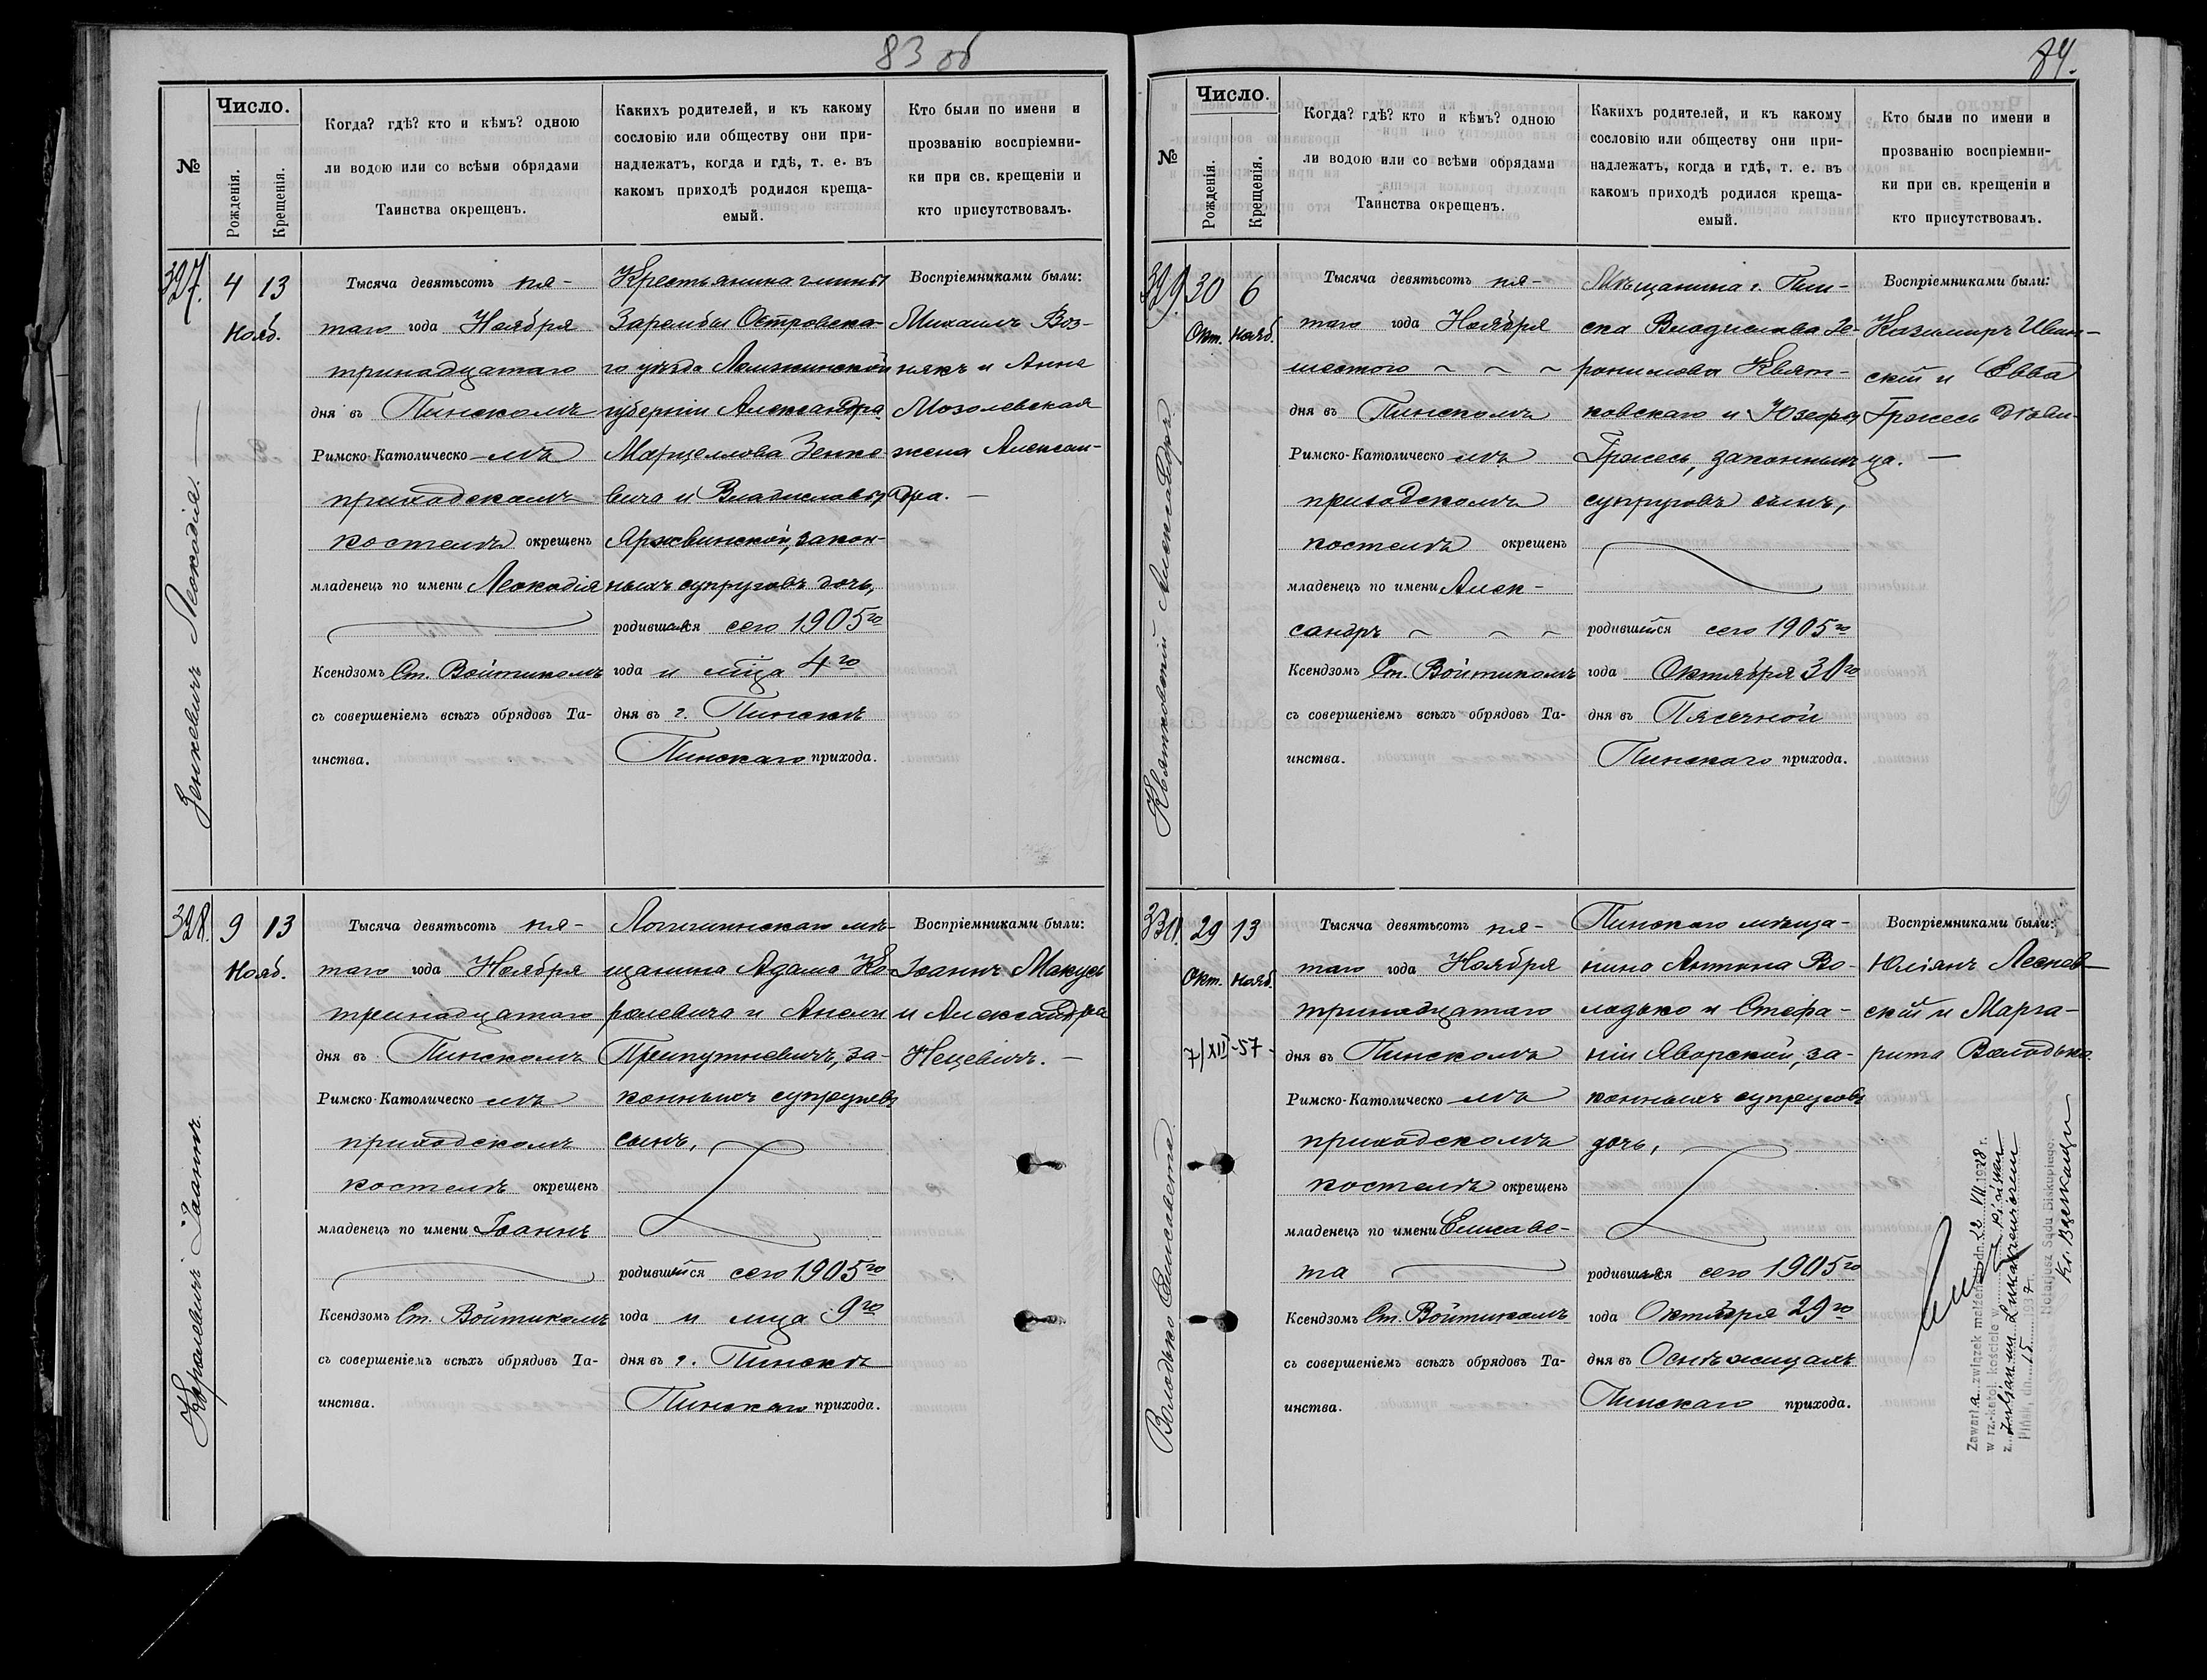 83 об
№
Число.
Рожденія.
Крещенія.
Когда? гдѣ? кто и кѣмъ? одною
ли водою или со всѣми обрядами
Таинства окрещенъ.
Какихъ родителей, и къ какому
сословію или обществу они при-
надлежатъ, когда и гдѣ, т. е. въ
какомъ приходѣ родился креща-
емый.
Кто были по имени и
прозванію воспріемни-
ки при св. крещеніи и
кто присутствовалъ.
327.
Зенкевичъ Леокадія.
4 13
Нояб.
Тысяча девятьсотъ пя-
таго года Ноября
тринадцатаго
дня въ Пинскомъ
Римско-Католическо-мъ
приходскомъ
костелѣ окрещенъ
младенецъ по имени Леокадія
Ксендзомъ Ст. Войтикомъ
съ совершеніемъ всѣхъ обрядовъ Та-
инства.
Крестьянина гмины
Зарембы Островска-
го уѣзда Ломжинской
губерніи Александра
Марцеллова Зенке-
вича и Владиславы
закон-
ныхъ супруговъ дочь,
родившаяся сего 1905го
года и мѣца 4го
дня въ г. Пинскѣ
Пинскаго прихода.
Воспріемниками были:
Михаилъ Воз-
някъ и Анна
Мозолевская
жена Алексан-
дра. —
328.
Королевичъ Іоаннъ.
9 13
Нояб.
Тысяча девятьсотъ пя-
таго года Ноября
тринадцатаго
дня въ Пинскомъ
Римско-Католическо-мъ
приходскомъ
костелѣ окрещенъ
младенецъ по имени Іоаннъ
Ксендзомъ Ст. Войтикомъ
съ совершеніемъ всѣхъ обрядовъ Та-
инства.
Логишинскаго мѣ-
щанина Адама Ко-
ролевича и Анели
Припутневичъ, за-
конныхъ супруговъ
сынъ,
родившійся сего 1905го
года и мѣца 9го
дня въ г. Пинскѣ
Пинскаго прихода.
Воспріемниками были:
Іоаннъ Макусь
и Александра
Нецевичъ. —
84.
№
Число.
Рожденія.
Крещенія.
Когда? гдѣ? кто и кѣмъ? одною
ли водою или со всѣми обрядами
Таинства окрещенъ.
Какихъ родителей, и къ какому
сословію или обществу они при-
надлежатъ, когда и гдѣ, т. е. въ
какомъ приходѣ родился креща-
емый.
Кто были по имени и
прозванію воспріемни-
ки при св. крещеніи и
кто присутствовалъ.
329.
Квятковскій Александръ
30 6
Окт. Нояб.
Тысяча девятьсотъ пя-
таго года Ноября
шестого
дня въ Пинскомъ
Римско-Католическо-мъ
приходскомъ
костелѣ окрещенъ
младенецъ по имени Алек-
сандръ
Ксендзомъ Ст. Войтикомъ
съ совершеніемъ всѣхъ обрядовъ Та-
инства.
Мѣщанина г. Пин-
ска Владислава Іе-
ронимова Квят-
ковскаго и Юзефы
Гржесь, законныхъ
супруговъ сынъ,
родившійся сего 1905го
года Октября 30го
дня въ Пясечной
Пинскаго прихода.
Воспріемниками были:
Казимиръ Ивин-
скій и Евва
Гржесь дѣви-
ца. —
330.
Володько Елисавета.
29 13
Окт. Нояб.
7/XII-57
Тысяча девятьсотъ пя-
таго года Ноября
тринадцатаго
дня въ Пинскомъ
Римско-Католическо-мъ
приходскомъ
костелѣ окрещенъ
младенецъ по имени Елисаве-
та
Ксендзомъ Ст. Войтикомъ
съ совершеніемъ всѣхъ обрядовъ Та-
инства.
Пинскаго мѣща-
нина Антона Во-
лодько и Стефа-
ніи Яворской, за-
конныхъ супруговъ
дочь,
родившаяся сего 1905го
года Октября 29го
дня въ Оснѣжицахъ
Пинскаго прихода.
Воспріемниками были:
Юліанъ Леснев-
скій и Марга-
рита Володько.
Zawarła związek małżeński dn. 22 VII 1928 r.
w rz.-katol. kościele w Pińsku
z Juljanem Łukaszewiczem
Pińsk, dn. 15 1937 r.
Notarjusz Sądu Biskupiego: